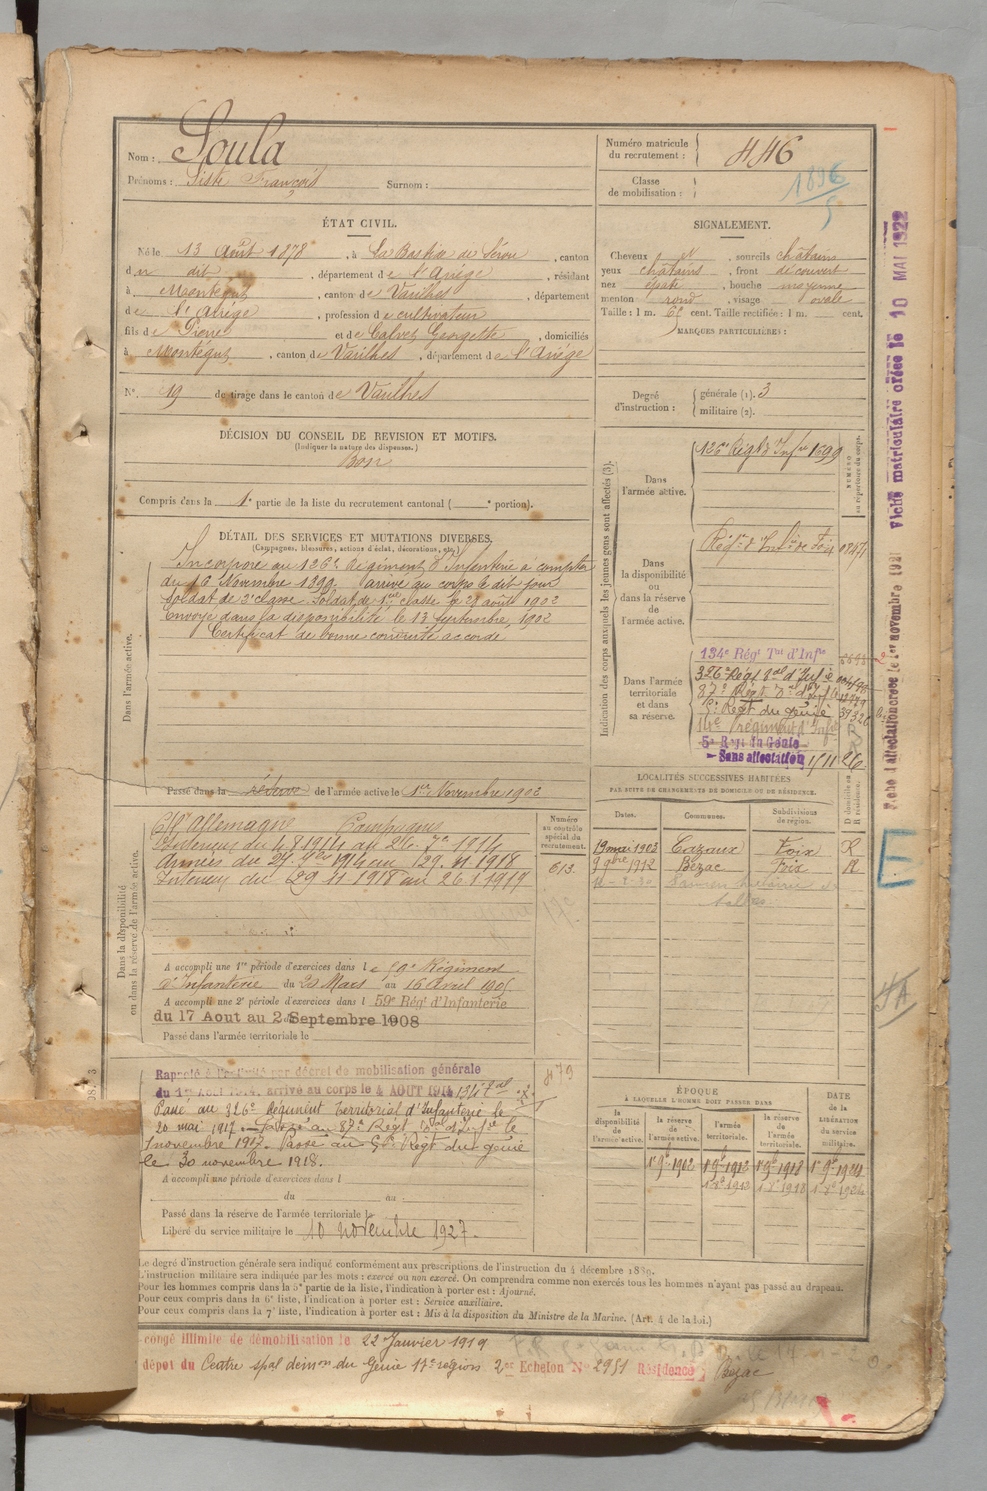 Nom : Soula
Prénoms : Siste François Surnom :
Numéro matricule du recrutement : 446
Classe de mobilisation :
1896
5
ÉTAT CIVIL.
Né le 13 Août 1878, à La Bastide de Sérou, canton
du dit, département de l'Ariège, résidant
à Montégut, canton de Varilhes, département
de l'Ariège, profession de cultivateur
fils de Pierre et de Calvet Georgette, domiciliés
à Montégut, canton de Varilhes, département de l'Ariège
N° 19 de tirage dans le canton de Varilhes
SIGNALEMENT.
Cheveux d, sourcils châtains
yeux châtains, front découvert
nez épaté, bouche moyenne
menton rond, visage ovale
Taille : 1 m. 65 cent. Taille rectifiée : 1 m. cent.
MARQUES PARTICULIÈRES :
Degré d'instruction : générale (1). 3
militaire (2).
DÉCISION DU CONSEIL DE REVISION ET MOTIFS.
(Indiquer la nature des dispenses.)
Bon
Compris dans la 1e partie de la liste du recrutement cantonal ( e portion).
DÉTAIL DES SERVICES ET MUTATIONS DIVERSES.
(Campagnes, blessures, actions d'éclat, décorations, etc.)
Dans l'armée active.
Incorporé au 126e Régiment d'Infanterie à compter
du 16 Novembre 1899. arrivé au corps le dit jour
soldat de 2e classe. Soldat de 1ere classe le 21 août 1902
Envoyé dans la disponibilité le 13 septembre 1902
Certificat de bonne conduite accordé
Passé dans la réserve de l'armée active le 1er Novembre 1902
Indication des corps auxquels les jeunes gens sont affectés (3).
NUMÉRO au répertoire du corps.
Dans l'armée active.
126e Régt d'Infie 1899
Dans la disponibilité ou dans la réserve de l'armée active.
Régt d'Infie de Foix
Dans l'armée territoriale et dans sa réserve.
134e Régt Tal d'Infie
326e Régt Tal d'Infie
87e Régt Tal d'Infie
5e Régt du génie
14e régiment d'Infie
5e Regt du Génie
Sans affectation
Dans la disponibilité ou dans la réserve de l'armée active.
Numéro au contrôle spécial du recrutement.
613
Cre l'Allemagne Campagnes
Intérieur du 4 8 1914 au 26 7bre 1914
Armées du 27 7bre 1914 au 29. 11 1918
Intérieur du 29 11 1918 au 26 1 1919
A accompli une 1re période d'exercices dans le 59e Régiment
d'Infanterie du 20 Mars au 16 Avril 1905
A accompli une 2e période d'exercices dans l 59e Régt d'Infanterie
du 17 Aout au 2 Septembre 1908
Passé dans l'armée territoriale le
LOCALITÉS SUCCESSIVES HABITÉES
PAR SUITE DE CHANGEMENTS DE DOMICILE OU DE RÉSIDENCE.
Dates. Communes. Subdivisions de région. D domicile ou R résidence.
19 mai 1903 Cazaux Foix R
9 9bre 1912 Bézac Foix R
Rappelé à l'activité par décret de mobilisation générale
du 1er Août 1914, arrivé au corps le 4 AOUT 1914 134e Tal
Passé au 326e Régiment Territorial d'Infanterie le
20 mai 1917. Passé au 87e Régt Tal d'Infie le
1 novembre 1917. Passé au 5e Régt du génie
le 30 novembre 1918.
A accompli une période d'exercices dans l
du au
Passé dans la réserve de l'armée territoriale l
Libéré du service militaire le 10 novembre 1927.
479
ÉPOQUE
À LAQUELLE L'HOMME DOIT PASSER DANS
DATE DE LA LIBÉRATION du service militaire.
la disponibilité de l'armée active. la réserve de l'armée active. l'armée territoriale. la réserve de l'armée territoriale.
1er 9bre 1902 1er 9bre 1912 1er 9bre 1918 1er 9bre 1924
Le degré d'instruction générale sera indiqué conformément aux prescriptions de l'instruction du 4 décembre 1889.
L'instruction militaire sera indiquée par les mots : exercé ou non exercé. On comprendra comme non exercés tous les hommes n'ayant pas passé au drapeau.
Pour les hommes compris dans la 5e partie de la liste, l'indication à porter est : Ajourné.
Pour ceux compris dans la 6e liste, l'indication à porter est : Service auxiliaire.
Pour ceux compris dans la 7e liste, l'indication à porter est : Mis à la disposition du Ministre de la Marine. (Art. 4 de la loi.)
congé illimité de démobilisation le 22 Janvier 1919
dépot du Centre spal démon du Génie 17e région 2er Echelon No 2951 Résidence : Bézac
Fiche matriculaire créée le 10 MAI 1922
Fiche d'affectation créée le 1er novembre 1921
E